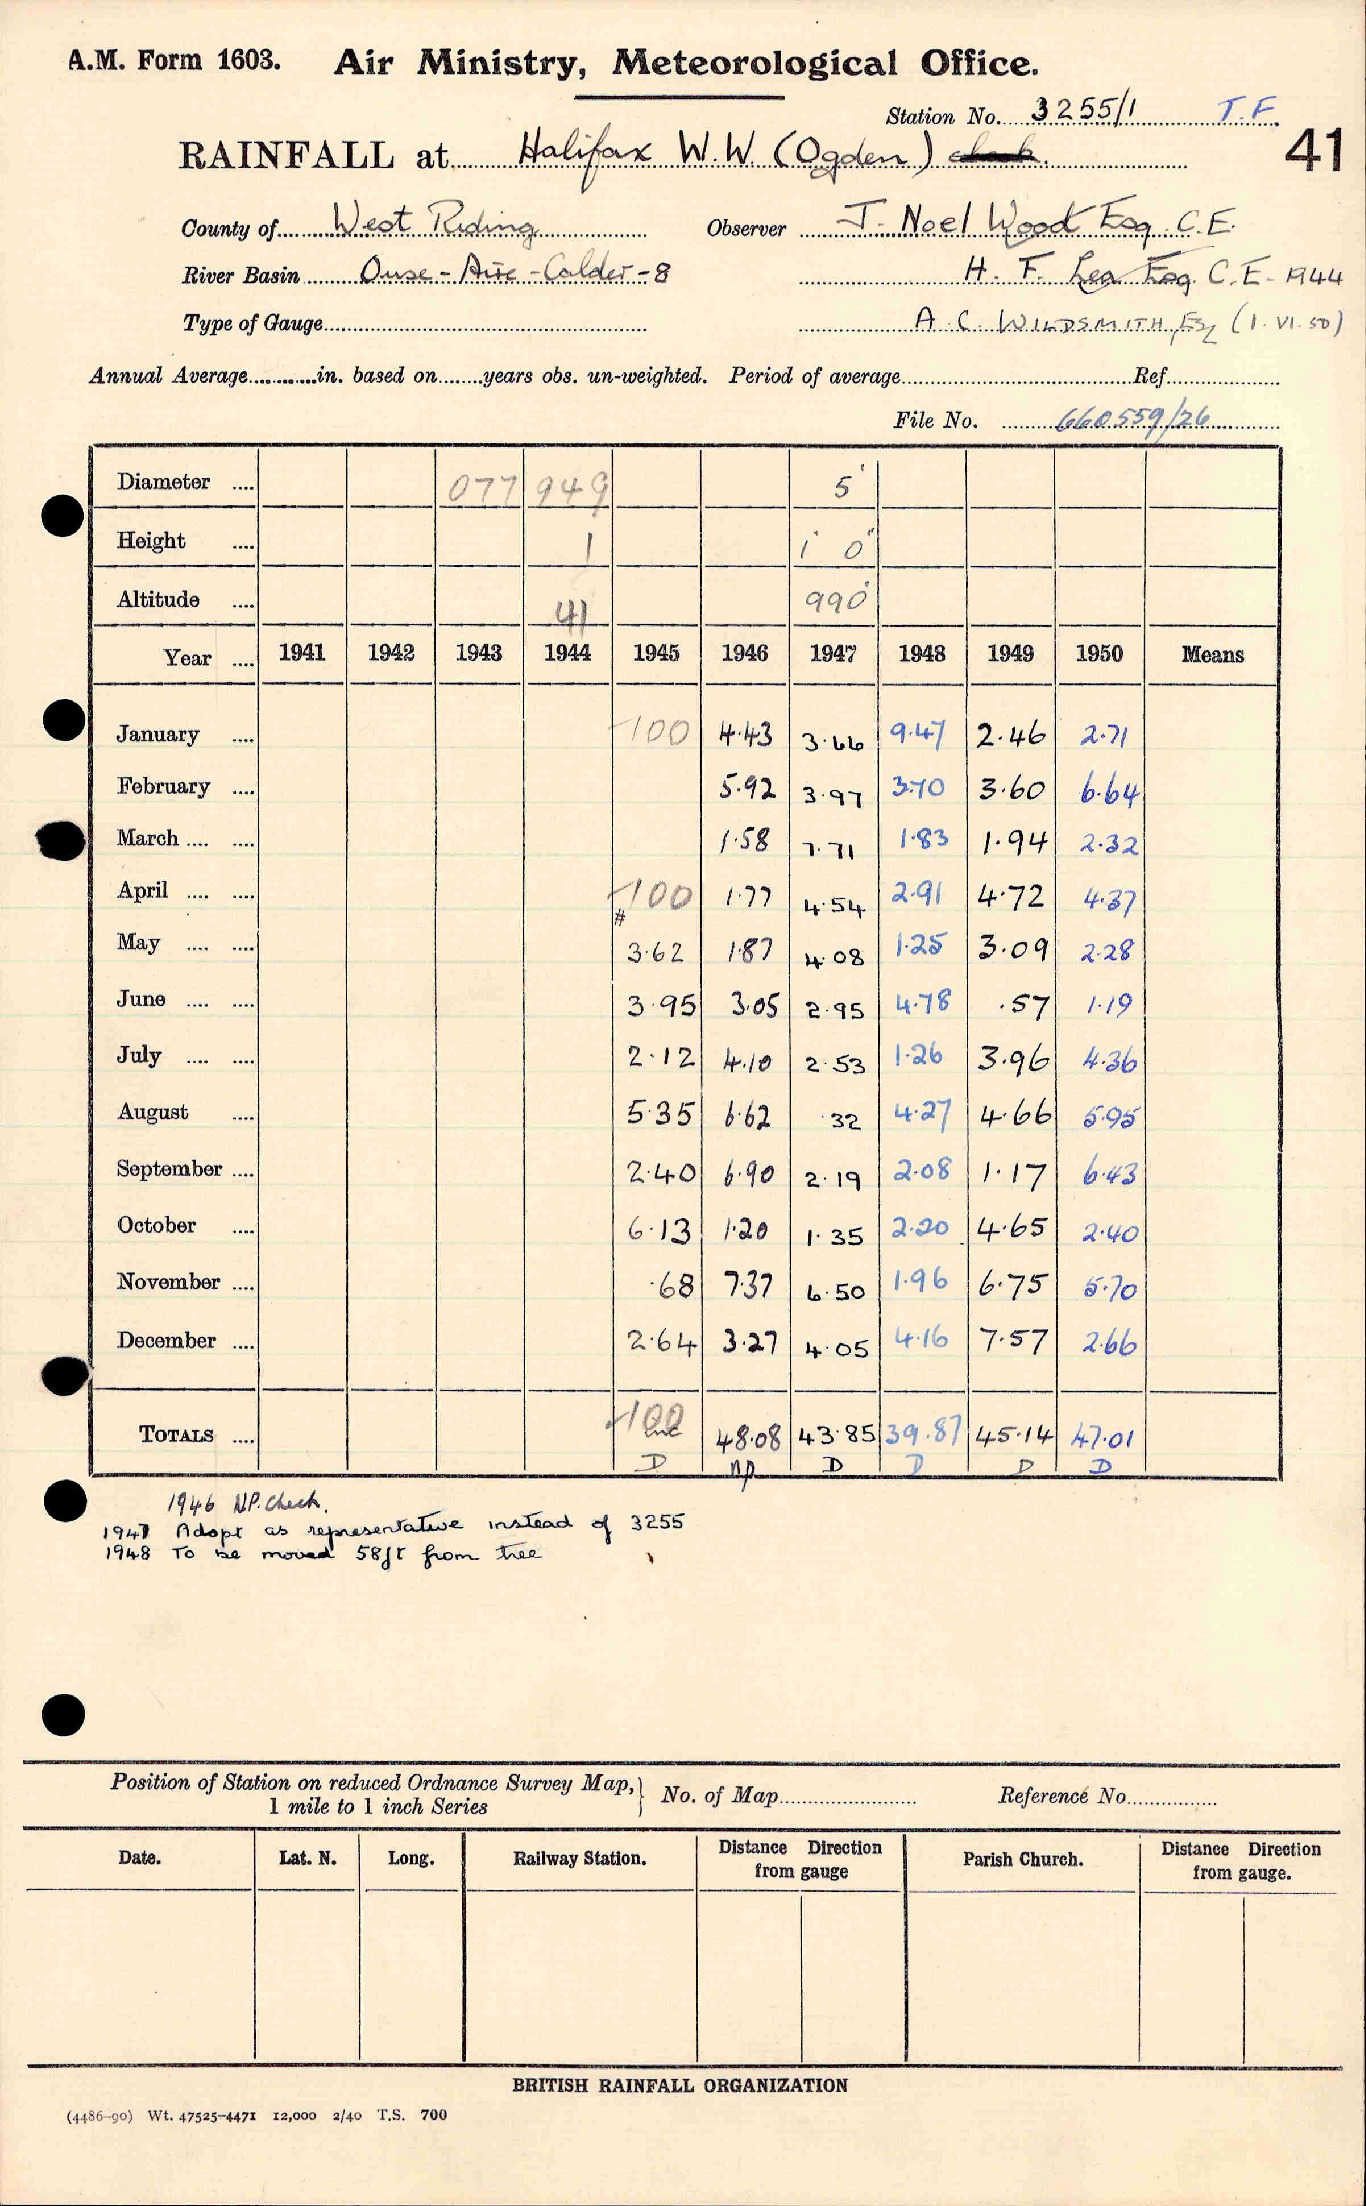 A.M. Form 1603. Air Ministry, Meteorological Office.
Station No. 3255/1 T.F.
RAINFALL at Halifax W.W (Ogden) 41
County of West Riding Observer J. Noel Wood Esq. C.E.
River Basin Ouse - Aire - Calder - 8 H. F. Lea Esq. C.E. - 1944
Type of Gauge A. C. WILDSMITH, Esq (1.VI.50)
Annual Average in. based on years obs. un-weighted. Period of average Ref.
File No. 660559/26
Diameter .... 077 949 5"
Height .... 1 1' 0"
Altitude .... 41 990'
Year .... 1941 1942 1943 1944 1945 1946 1947 1948 1949 1950 Means
January .... -100 4.43 3.66 9.47 2.46 2.71
February .... 5.92 3.97 3.70 3.60 6.64
March .... .... 1.58 7.71 1.83 1.94 2.32
April .... .... -100 1.77 4.54 2.91 4.72 4.37
May .... .... # 3.62 1.87 4.08 1.25 3.09 2.28
June .... .... 3.95 3.05 2.95 4.78 .57 1.19
July .... .... 2.12 4.10 2.53 1.26 3.96 4.36
August .... 5.35 6.62 .32 4.27 4.66 5.95
September .... 2.40 6.90 2.19 2.08 1.17 6.43
October .... 6.13 1.20 1.35 2.20 4.65 2.40
November .... .68 7.37 6.50 1.96 6.75 5.70
December .... 2.64 3.27 4.05 4.16 7.57 2.66
TOTALS .... -100 48.08 43.85 39.87 45.14 47.01
D NP D D D D
1946 N.P. check.
1947 Adopt as representative instead of 3255
1948 To be moved 58ft from tree
Position of Station on reduced Ordnance Survey Map, 1 mile to 1 inch Series } No. of Map Reference No.
Date. Lat. N. Long. Railway Station. Distance Direction from gauge Parish Church. Distance Direction from gauge.
BRITISH RAINFALL ORGANIZATION
(4486-90) Wt. 47525-4471 12,000 2/40 T.S. 700